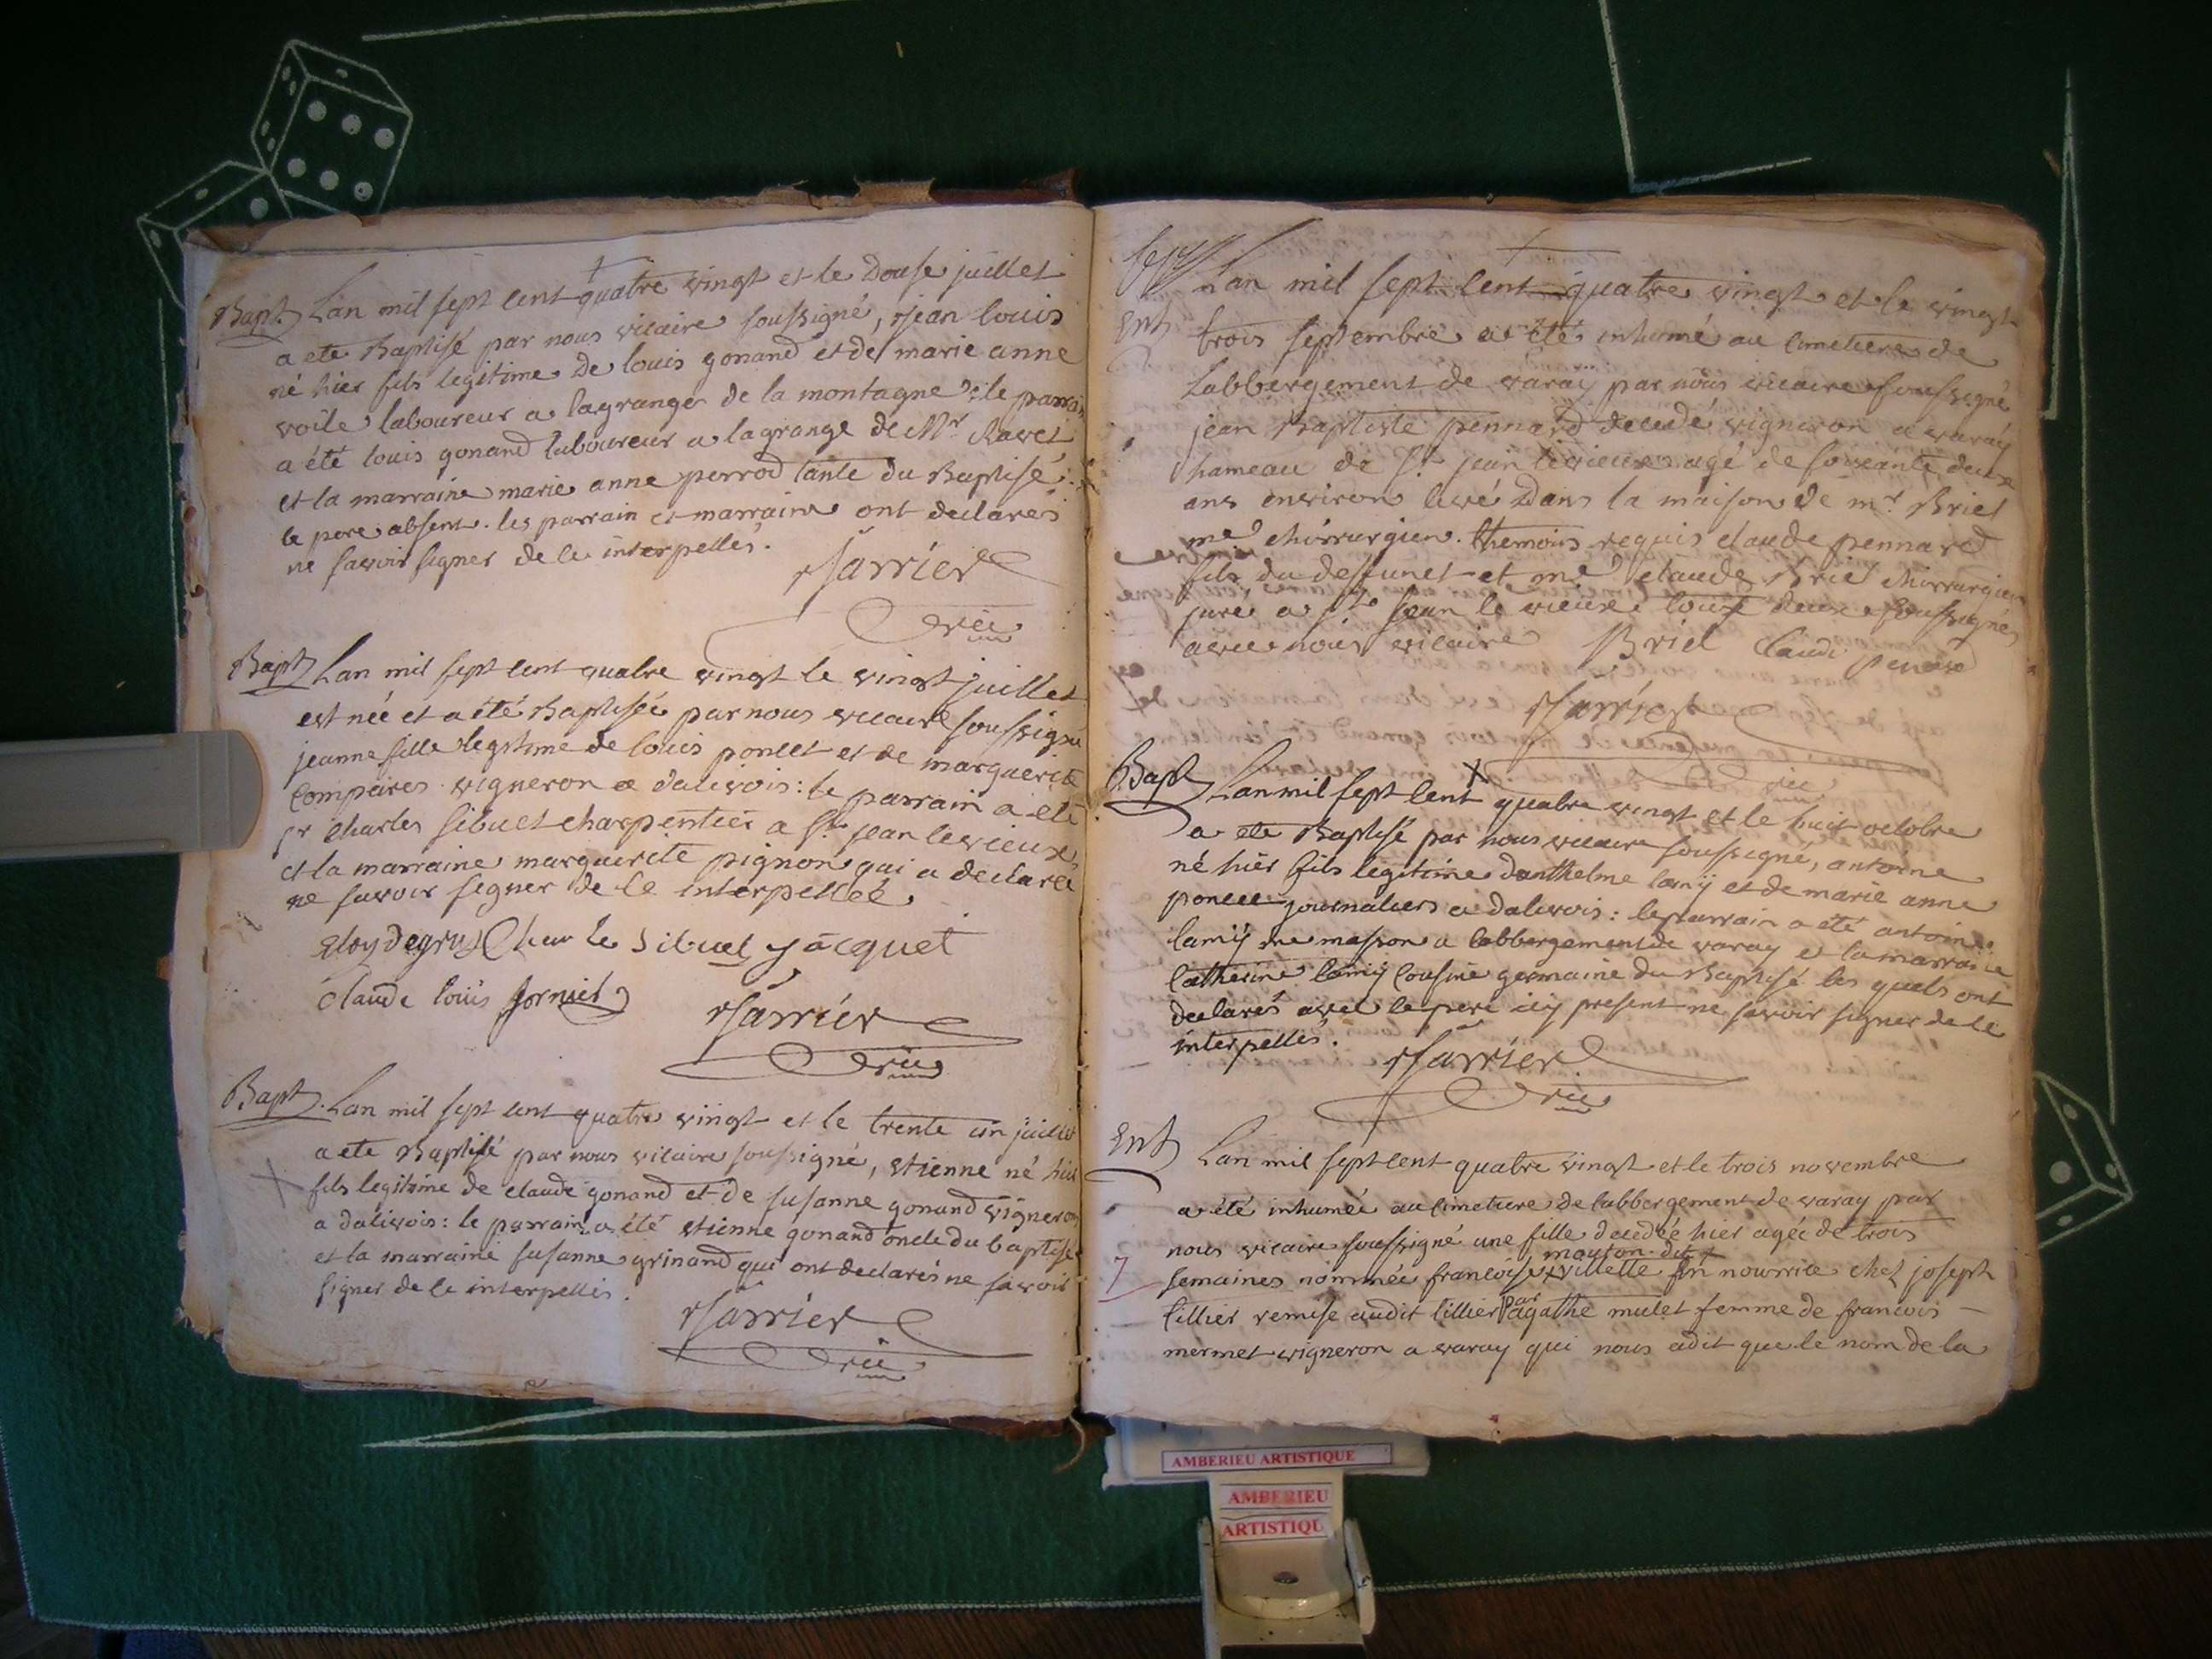 Bapt. Lan mil sept cent quatre vingt et le douse juillet
a ete Baptisé par nous vicaire soussigné, jean louis
né hier fils legitime de louis gonand et de marie anne
voile laboureur a lagrange de la montagne: le parrain
a été louis gonand laboureur a lagrange de Mr. Ravet
et la marraine marie anne perrod tante du Baptisé:
le pere absent. les parrain et marraine ont declarés
ne savoir signer de ce interpellés.
Jarrier
vic
Bapt Lan mil sept cent quatre vingt le vingt juillet
est née et a été Baptisée par nous vicaire soussigné
jeanne fille legitime de louis poncet et de marguerite
compaires vigneron a dalivois: le parrain a été
sr charles sibuet charpentier a St jean le vieux,
et la marraine marguerite pignon qui a declaré
ne savoir signer de ce interpellée.
Eloy degrus Charle Sibuet jacquet
claude louis
Jarrier
vic
Bapt. Lan mil sept cent quatre vingt et le trente un juillet
a ete Baptisé par nous vicaire soussigné, etienne né hier
fils legitime de claude gonand et de susanne gonand vigneron
a dalivois: le parrain a été etienne gonand oncle du baptisé
et la marraine susanne grinand qui ont declarés ne savoir
signer de ce interpellés.
Jarrier
vic
Lan mil sept cent quatre vingt et le vingt
Ent trois septembre a été inhumé au cimetiere de
Labbergement de varay par nous vicaire soussigné
jean Baptiste pennard decedé vigneron a varay
hameau de St jean le vieux agé de soixante deux
ans environ levé dans la maison de mr. Briel
me chirurgien. themoins requis claude pennard
fils du deffunct et me claude Briel chirrurgien
juré a St jean le vieux tous deux soussignés
avec nous vicaire Briel Claude penard
Jarrier
vic
Bapt Lan mil sept cent quatre vingt et le huit octobre
a ete Baptisé par nous vicaire soussigné, antoine
né hier fils legitime danthelme lamy et de marie anne
poncet journaliers a dalivois: le parrain a été antoine
lamy me masson a labbergement de varay et la marraine
catherine lamy cousine germaine du Baptisé les quels ont
declarés avec le pere icy present ne savoir signer de ce
interpellés.
Jarrier
vic
Ent Lan mil sept cent quatre vingt et le trois novembre
a été inhumée au cimetiere de labbergement de varay par
nous vicaire soussigné une fille decedée hier agée de trois
mouton dit
7 semaines nommée francoise villette en nourrice chez joseph
tillier remise audit tillier par agathe mulet femme de francois
mermet vigneron a varay qui nous a dit que le nom de la
AMBERIEU ARTISTIQUE
AMBERIEU
ARTISTIQU